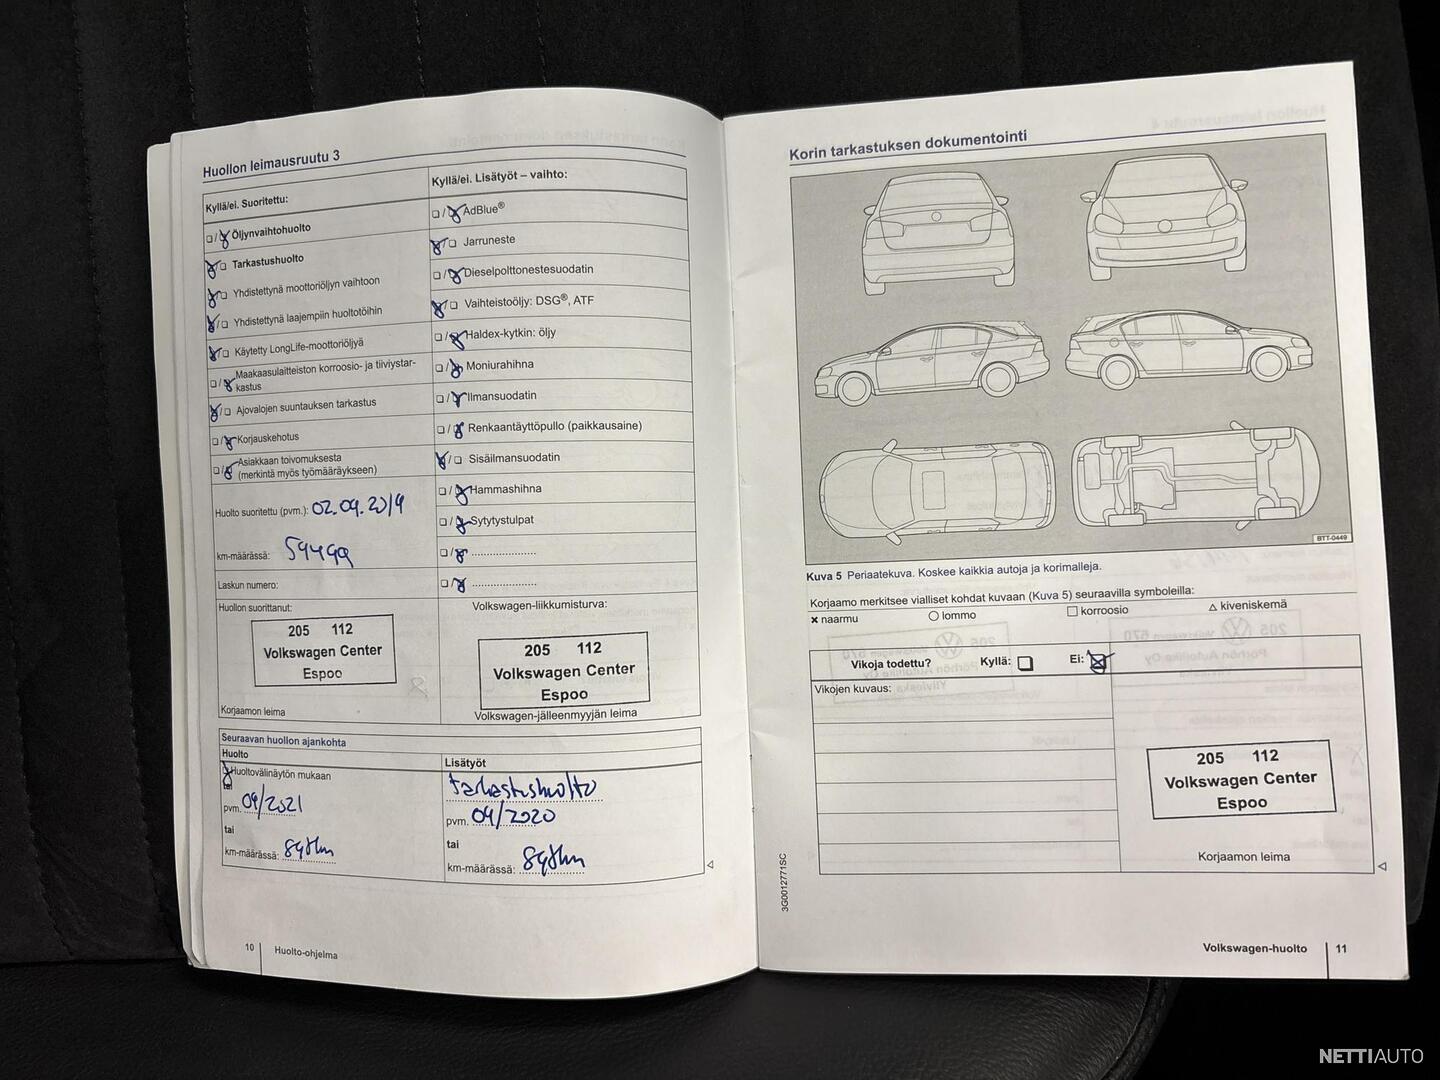 Huollon leimausruutu 3
Kyllä/ei. Suoritettu:
Öljynvaihtohuolto
Tarkastushuolto
Yhdistettynä moottoriöljyn vaihtoon
Yhdistettynä laajempiin huoltotöihin
Käytetty LongLife-moottoriöljyä
Maakaasulaitteiston korroosio- ja tiiviystar-
kastus
Ajovalojen suuntauksen tarkastus
Korjauskehotus
Asiakkaan toivomuksesta
(merkintä myös työmääräykseen)
Huolto suoritettu (pvm.): 02.09.2019
km-määrässä: 59499
Laskun numero:
Huollon suorittanut:
205 112
Volkswagen Center
Espoo
Korjaamon leima
Kyllä/ei. Lisätyöt – vaihto:
AdBlue®
Jarruneste
Dieselpolttonestesuodatin
Vaihteistoöljy: DSG®, ATF
Haldex-kytkin: öljy
Moniurahihna
Ilmansuodatin
Renkaantäyttöpullo (paikkausaine)
Sisäilmansuodatin
Hammashihna
Sytytystulpat
Volkswagen-liikkumisturva:
205 112
Volkswagen Center
Espoo
Volkswagen-jälleenmyyjän leima
Seuraavan huollon ajankohta
Huolto
Huoltovälinäytön mukaan
tai
pvm. 09/2021
tai
km-määrässä: 89tkm
Lisätyöt
tarkastushuolto
pvm. 09/2020
tai
km-määrässä: 89tkm
10 Huolto-ohjelma
Korin tarkastuksen dokumentointi
BTT-0449
Kuva 5 Periaatekuva. Koskee kaikkia autoja ja korimalleja.
Korjaamo merkitsee vialliset kohdat kuvaan (Kuva 5) seuraavilla symboleilla:
× naarmu ○ lommo □ korroosio △ kiveniskemä
Vikoja todettu? Kyllä: Ei:
Vikojen kuvaus:
205 112
Volkswagen Center
Espoo
Korjaamon leima
3G0012771SC
Volkswagen-huolto 11
NETTIAUTO